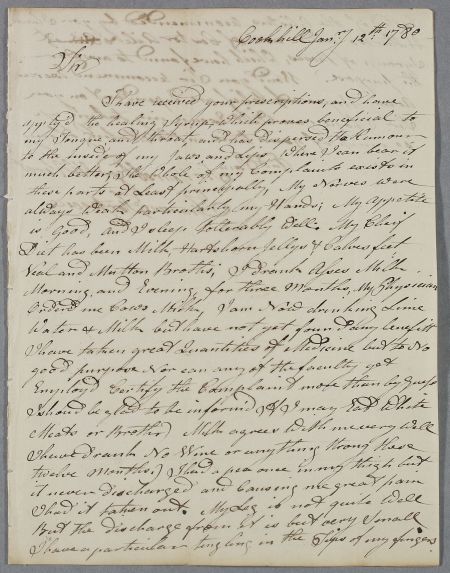 Cornhill Janry 12th 1780
Sir
I have received your prescriptions, and have
apply'd the healing Syrup which proves beneficial to
my Tongue and throat, and has dispersed the Rumour
to the inside of my Jaws and Lips Where I can bear it
much better, The Whole of my Complaints exists in
these parts at Least principally, My Nerves were
always Weak particularly my Hands, My Appetite
is Good, and I sleep tollerably Well. My Cheif
Diet has been Milk Hartshorn Jellys & Calves feet
Veal and Mutton Broths, I drank Asses Milk
Morning and Evening for three Months, My Physician
Orderd me Cows Milk, I am Now drinking Lime
Water & Milk but have not yet found any benefitt
I have taken great Quantities of Medicine but to No
good purpose Nor can any of the faculty yet
Employd Certify the Complaint more than by guess
I shoud be glad to be informd If I may Eat White
Meats or Broths) Milk agrees With me very Well
I have drank No Wine or any thing strong these
twelve Months.) I had a pea once in my thigh but
it never discharged and causing me great pain
I had it taken out. My Leg is not quite Well
But the discharge from it is but very Small
I have a particular tingling in the Tips of my fingers